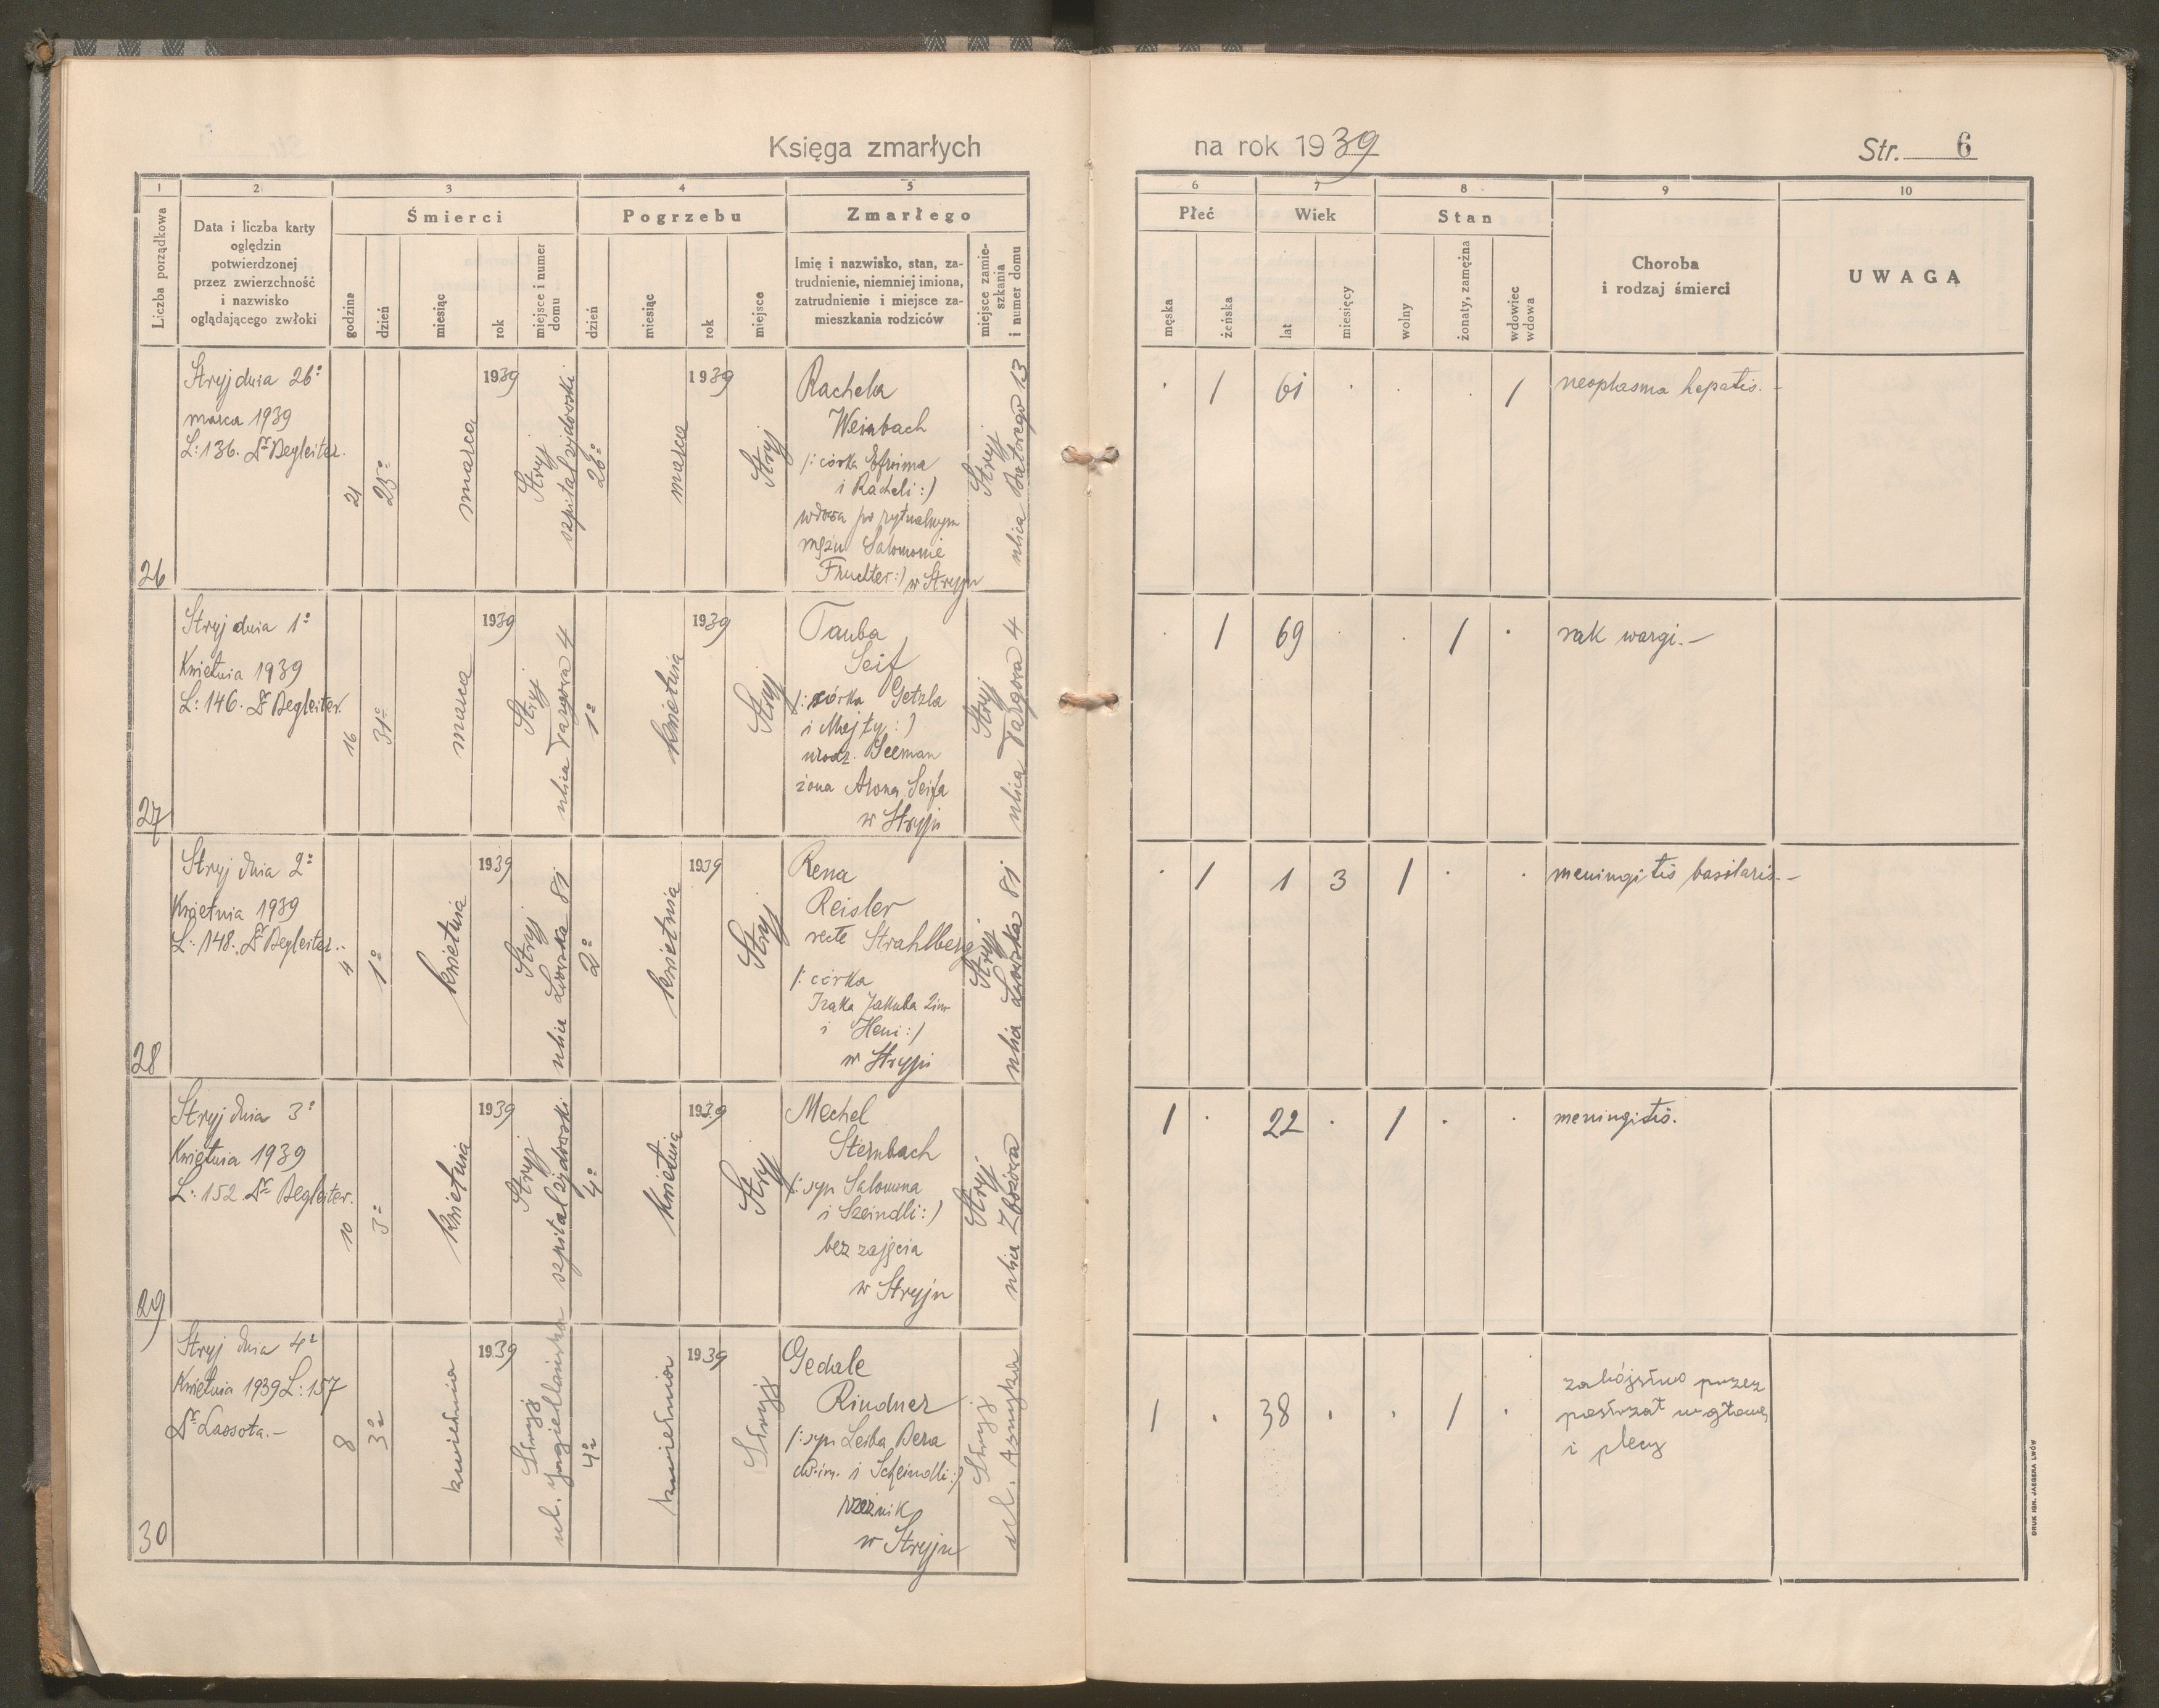 Księga zmarłych
na rok 1939
Str. 6
1 2 3 4 5
6 7 8 9 10
Liczba porządkowa
Data i liczba karty
oględzin
potwierdzonej
przez zwierzchność
i nazwisko
oglądającego zwłoki
Śmierci
godzina
dzień
miesiąc
rok
miejsce i numer
domu
Pogrzebu
dzień
miesiąc
rok
miejsce
Zmarłego
Imię i nazwisko, stan, za-
trudnienie, niemniej imiona,
zatrudnienie i miejsce za-
mieszkania rodziców
miejsce zamie-
szkania
i numer domu
Płeć
męska
żeńska
Wiek
lat
miesięcy
Stan
wolny
żonaty, zamężna
wdowiec
wdowa
Choroba
i rodzaj śmierci
UWAGA
26
Stryj dnia 26º
marca 1939
L: 136. Dr Begleiter.
21
25º
marca
1939
Stryj
szpital żydowski
26º
marca
1939
Stryj
Rachela
Weinbach
/: córka Efroima
i Racheli :/
wdowa po rytualnym
mężu Salomonie
Fruchter :/ w Stryju
Stryj
ulica Batorego 13
. 1 61 . . . 1
neoplasma hepatis. -
27
Stryj dnia 1º
Kwietnia 1939
L: 146. Dr Begleiter.
16
31º
marca
1939
Stryj
ulica Targowa 4
1º
kwietnia
1939
Stryj
Tauba
Seif
/: córka Getzla
i Mejty :/
urodz. Seeman
żona Arona Seifa
w Stryju
Stryj
ulica Targowa 4
. 1 69 . . 1 .
rak wargi. -
28
Stryj dnia 2º
Kwietnia 1939
L: 148. Dr Begleiter. -
4
1º
kwietnia
1939
Stryj
ulica Lwowska 81
2º
kwietnia
1939
Stryj
Rena
Reisler
recte Strahlberg
/: córka
Izaka Jakuba 2im
i Heni :/
w Stryju
Stryj
ulica Lwowska 81
. 1 1 3 1 . .
meningitis basilaris. -
29
Stryj dnia 3º
Kwietnia 1939
L: 152 Dr Begleiter.
10
3º
kwietnia
1939
Stryj
szpital żydowski
4º
kwietnia
1939
Stryj
Mechel
Sternbach
/: syn Salomona
i Szeindli :/
bez zajęcia
w Stryju
Stryj
ulica Zbożowa
1 . 22 . 1 . .
meningitis.
30
Stryj dnia 4º
Kwietnia 1939 L: 157
Dr Lassota. -
8
3º
kwietnia
1939
Stryj
ul. Jagiellońska
4º
kwietnia
1939
Stryj
Gedale
Rindner
/: syn Leiba Bera
dw. im. i Scheindli :/
rzeźnik
w Stryju
Stryj
ul. Asnyka
1 . 38 . . 1 .
zabójstwo przez
postrzał w głowę
i plecy
DRUK IGN. JAEGERA LWÓW